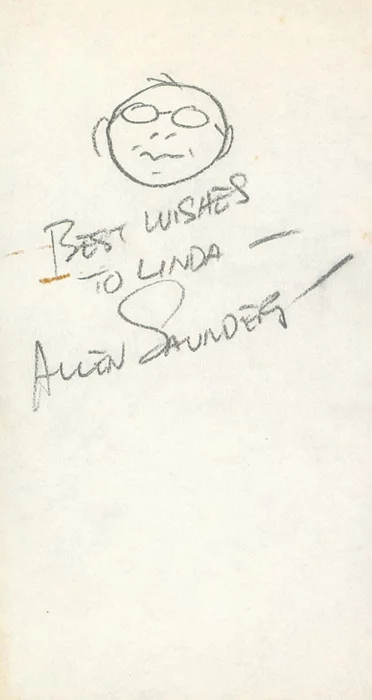 BEST WISHES
TO LINDA —
ALLEN SAUNDERS